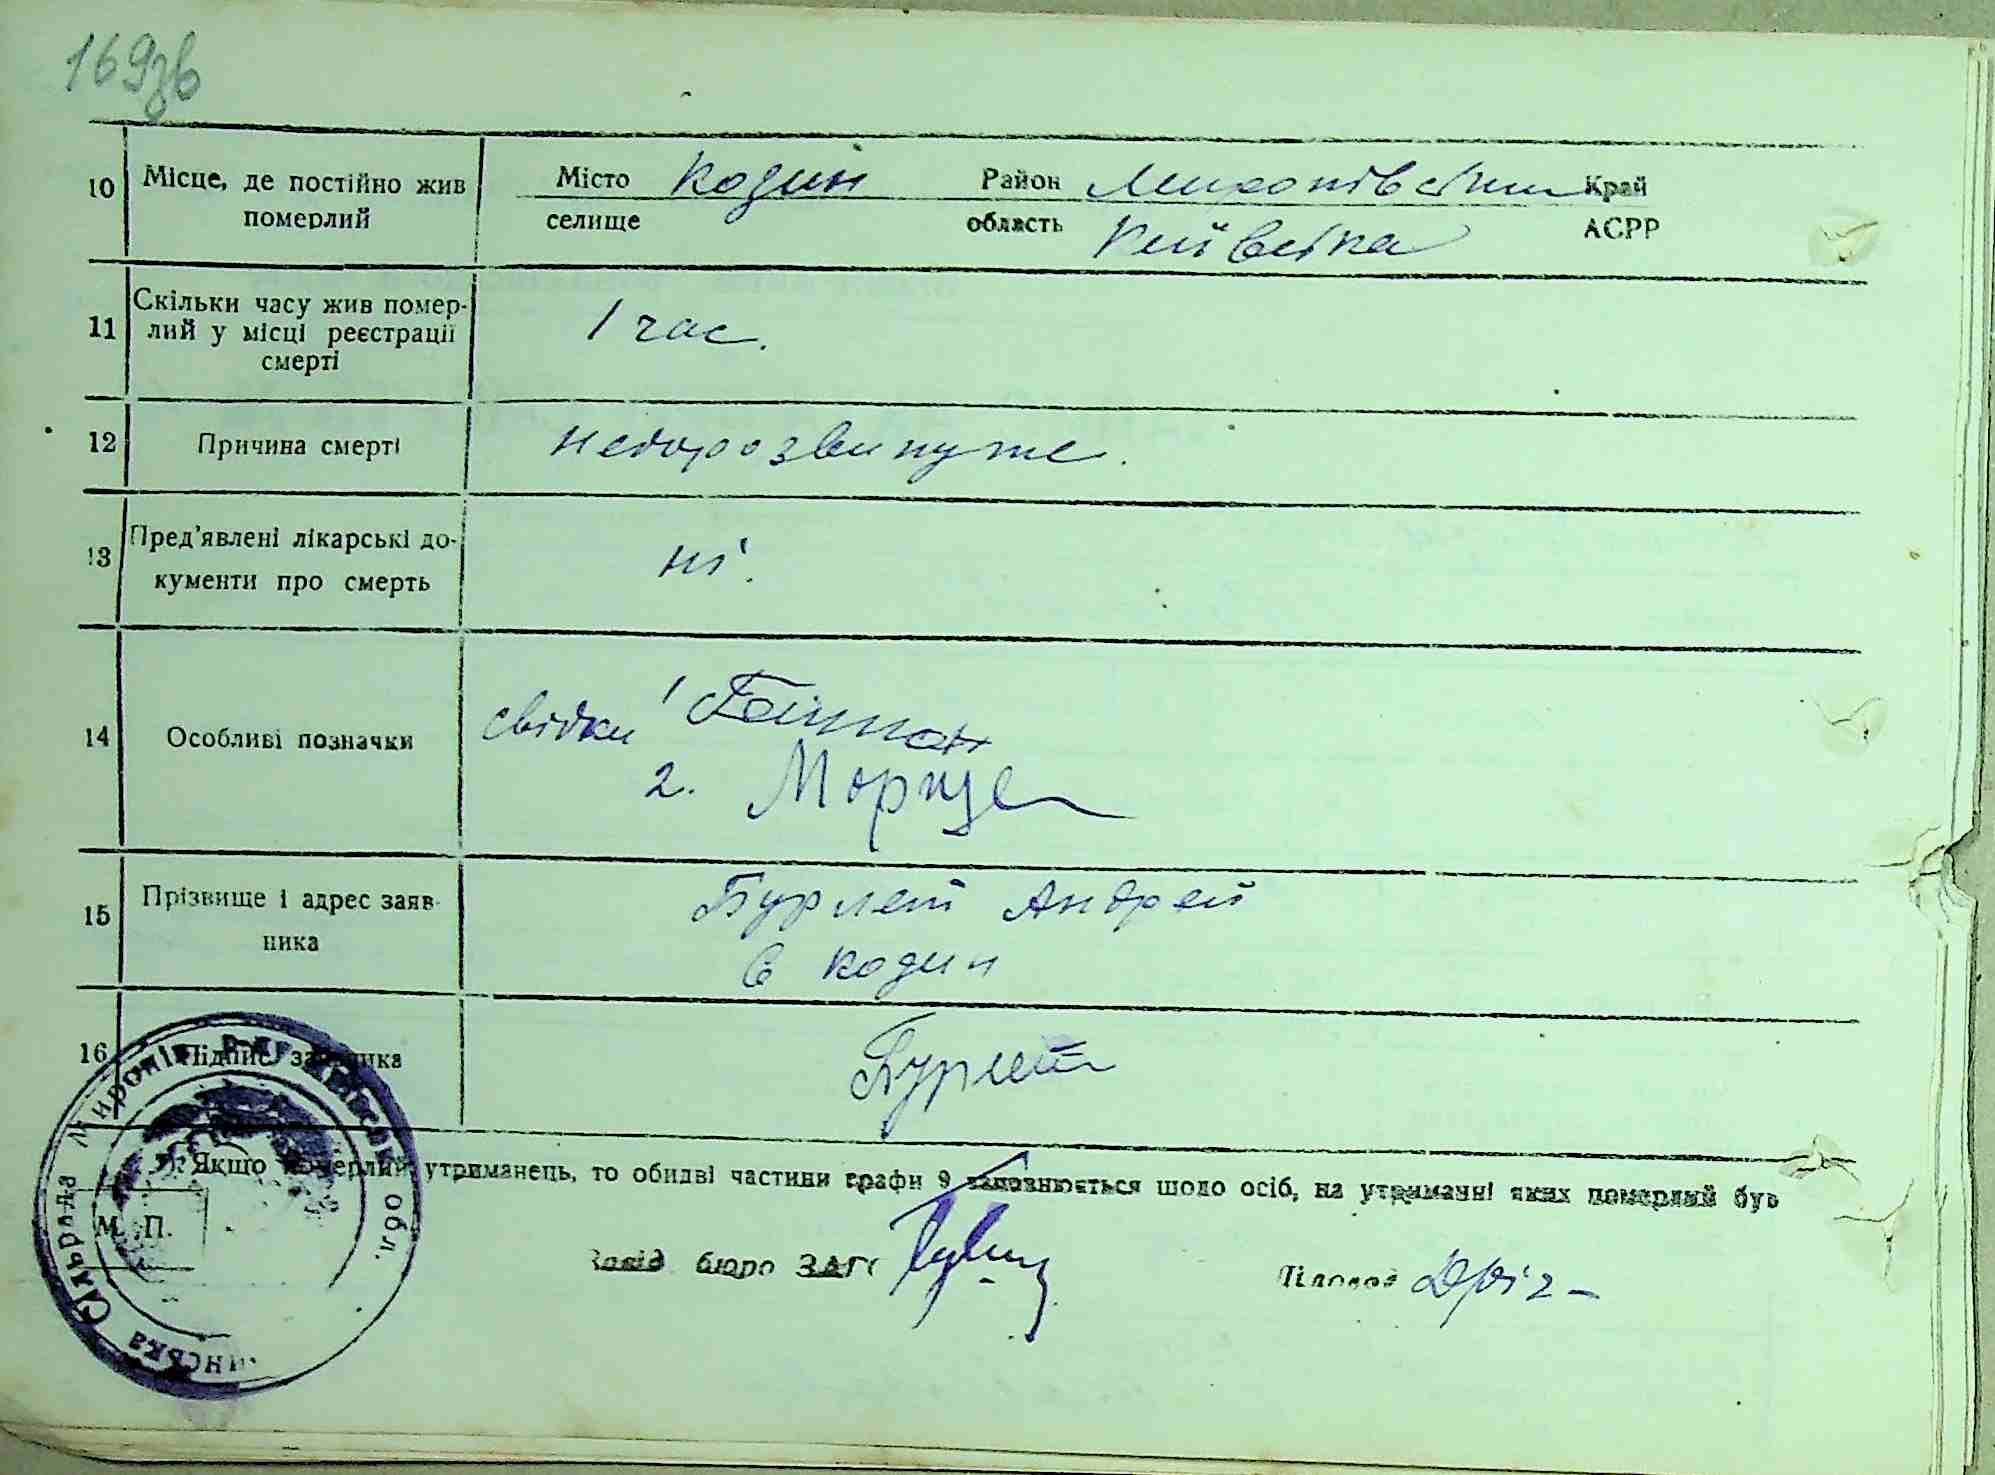 169зв
10 Місце, де постійно жив померлий
Місто Кодин Район Миронівський Край
селище область Київська АСРР
11 Скільки часу жив помер-
лий у місці реєстрації
смерті
1 час.
12 Причина смерті недорозвинуте.
13 Пред'явлені лікарські до-
кументи про смерть
ні.
14 Особливі позначки
свідки 1
2.
15 Прізвище і адрес заяв-
ника
Бурлет Андрей
с Кодин
16 Підпис заявника Бурлет
Якщо померлий утриманець, то обидві частини графи 9 заповнюється щодо осіб, на утриманні яких померлий був
М. П.
Завід бюро ЗАГС
Діловод
Сільрада Миронів. р-ну Київськ. обл.